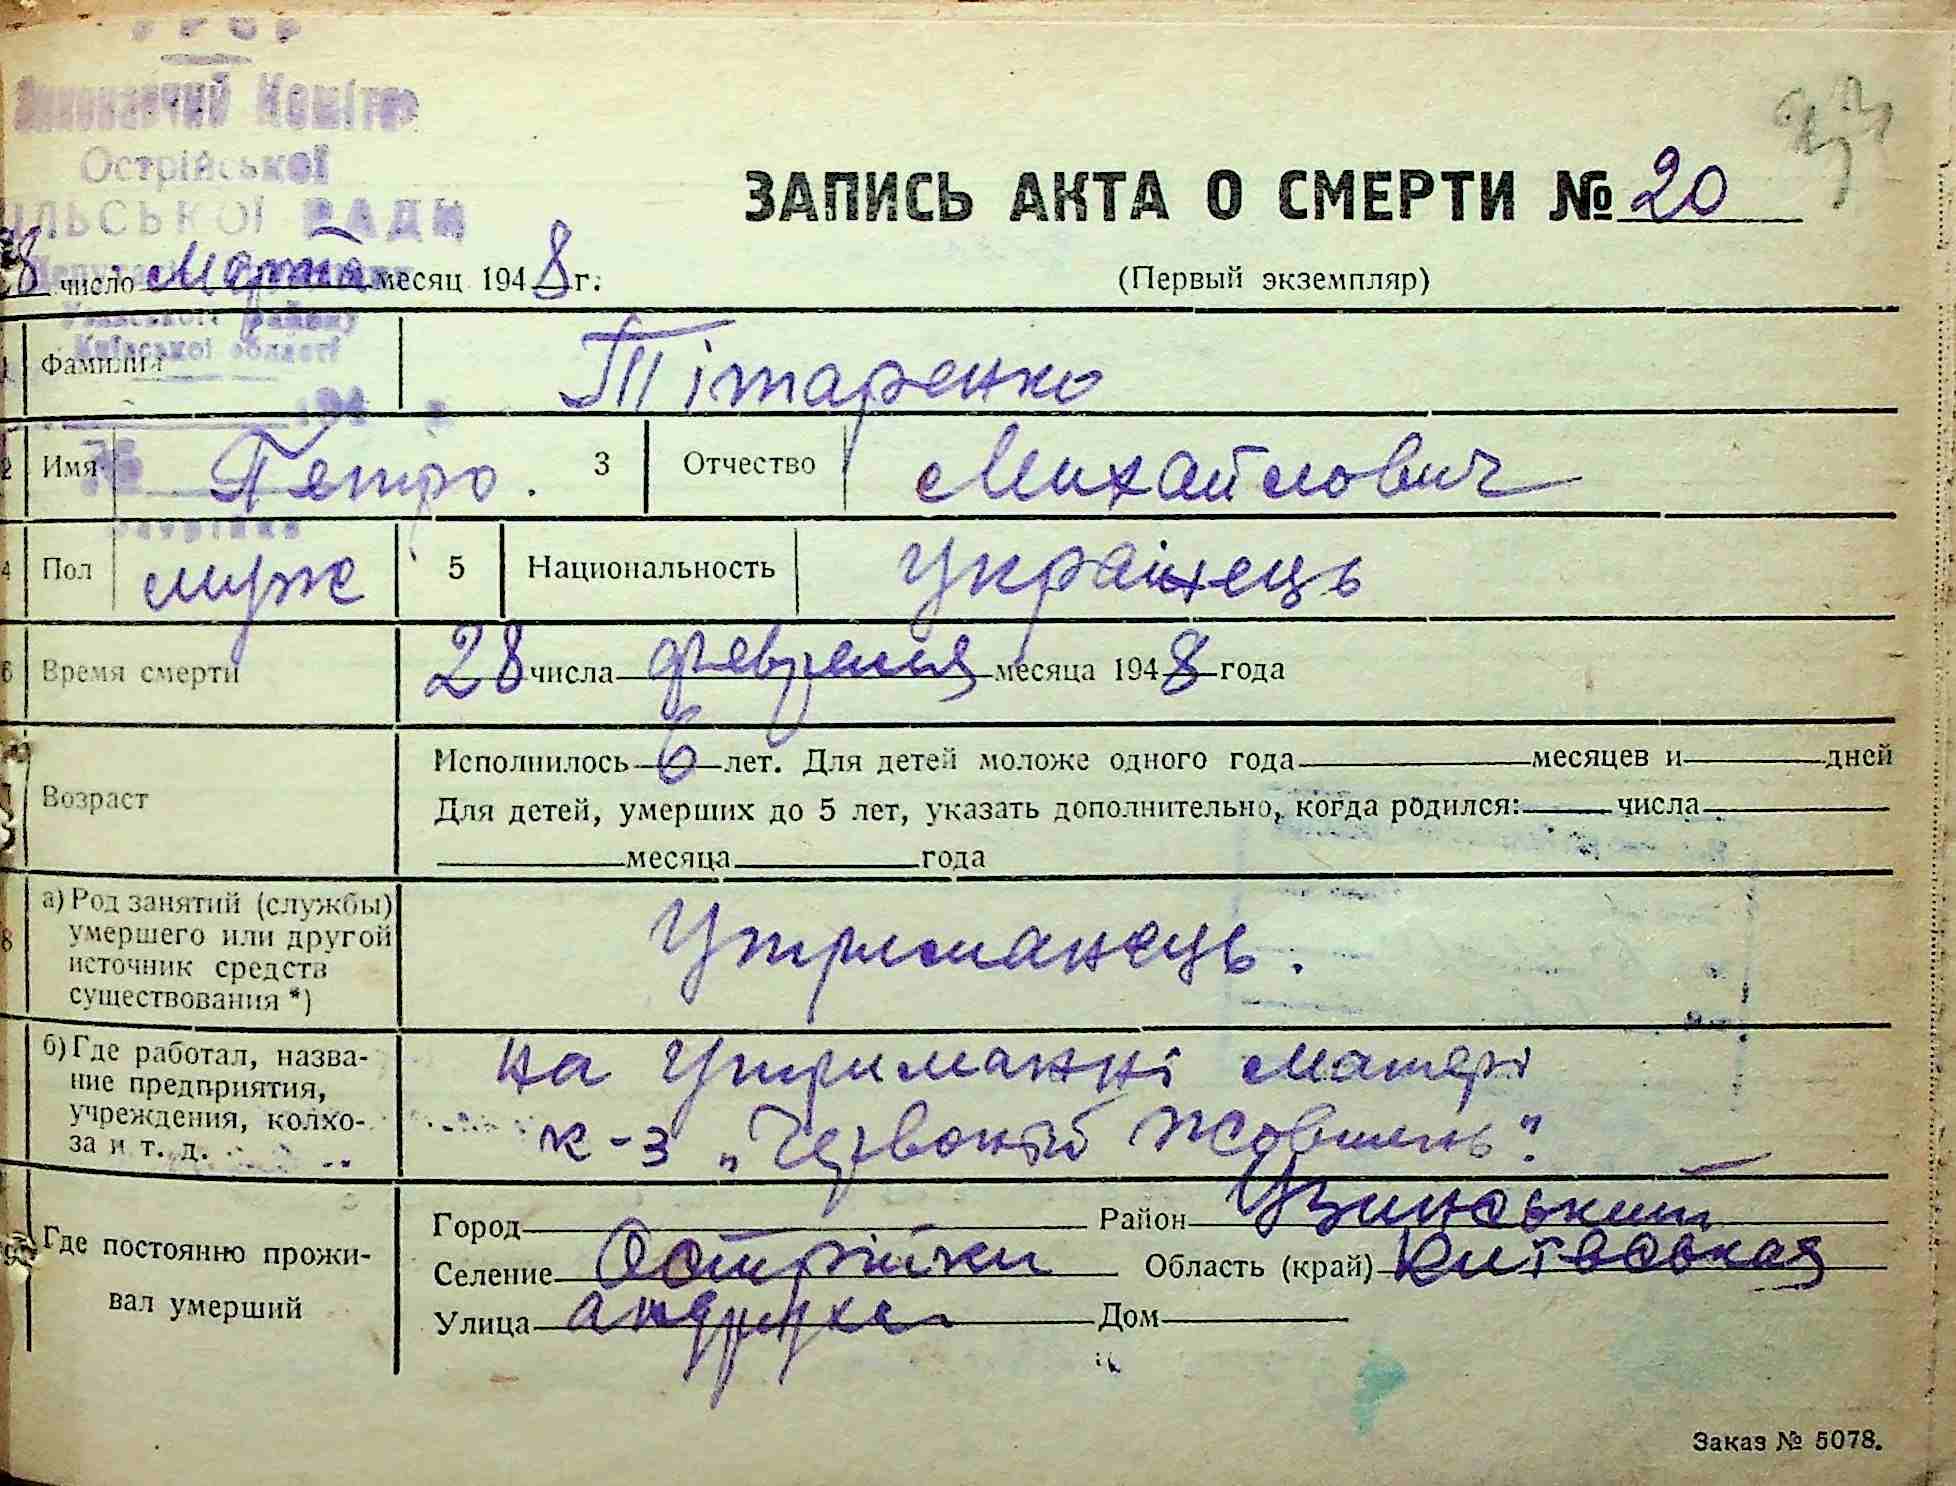 УРСР
Виконавчий Комітет
Острійської
ІЛЬСЬКОЇ РАДИ
Київської області
ЗАПИСЬ АКТА О СМЕРТИ № 20
8 число Марта месяц 1948 г.
(Первый экземпляр)
Фамилия Тітаренко
2 Имя Петро. 3 Отчество Михайлович
4 Пол муж 5 Национальность Українець
6 Время смерти 28 числа февраля месяца 1948 года
Возраст Исполнилось 6 лет. Для детей моложе одного года месяцев и дней
Для детей, умерших до 5 лет, указать дополнительно, когда родился: числа
месяца года
8 а) Род занятий (службы) умершего или другой источник средств существования *) Утриманець.
б) Где работал, название предприятия, учреждения, колхоза и т. д. на утриманні матері
к-з „Червоній Жовтень".
Где постоянно проживал умерший
Город Район Узинський
Селение Острійки Область (край) Київськая
Улица Дом
Заказ № 5078.